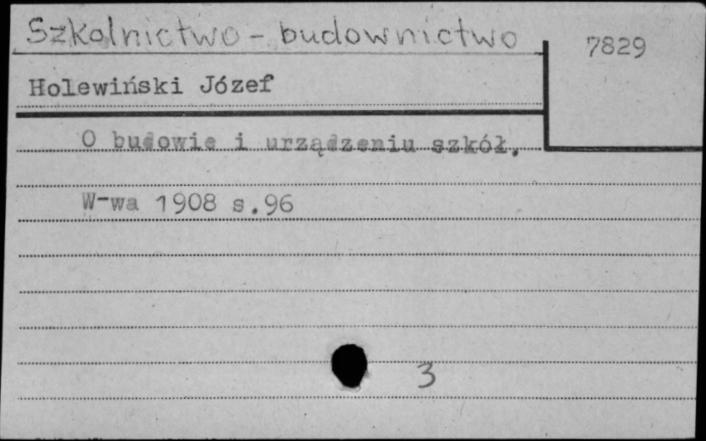 Szkolnictwo - budownictwo
7829
Holewiński Józef
O budowie i urządzeniu szkół.
W-wa 1908 s.96
3